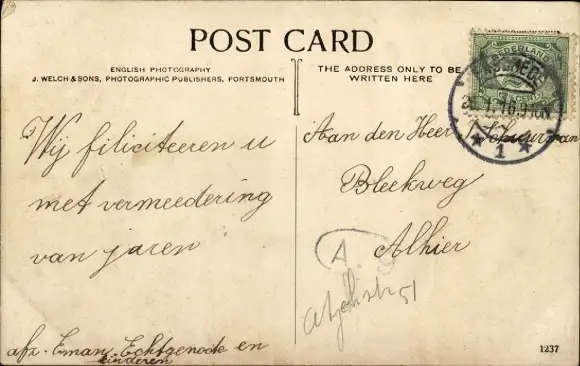 POST CARD
ENGLISH PHOTOGRAPHY
J. WELCH & SONS, PHOTOGRAPHIC PUBLISHERS, PORTSMOUTH
THE ADDRESS ONLY TO BE
WRITTEN HERE
NEDERLAND
Wij filiciteeren u
met vermeedering
van jaren
afz. Eman. Echtgenode en
kinderen
Aan den Heer Schuurman
Bleekweg
Alhier
A
51
1237